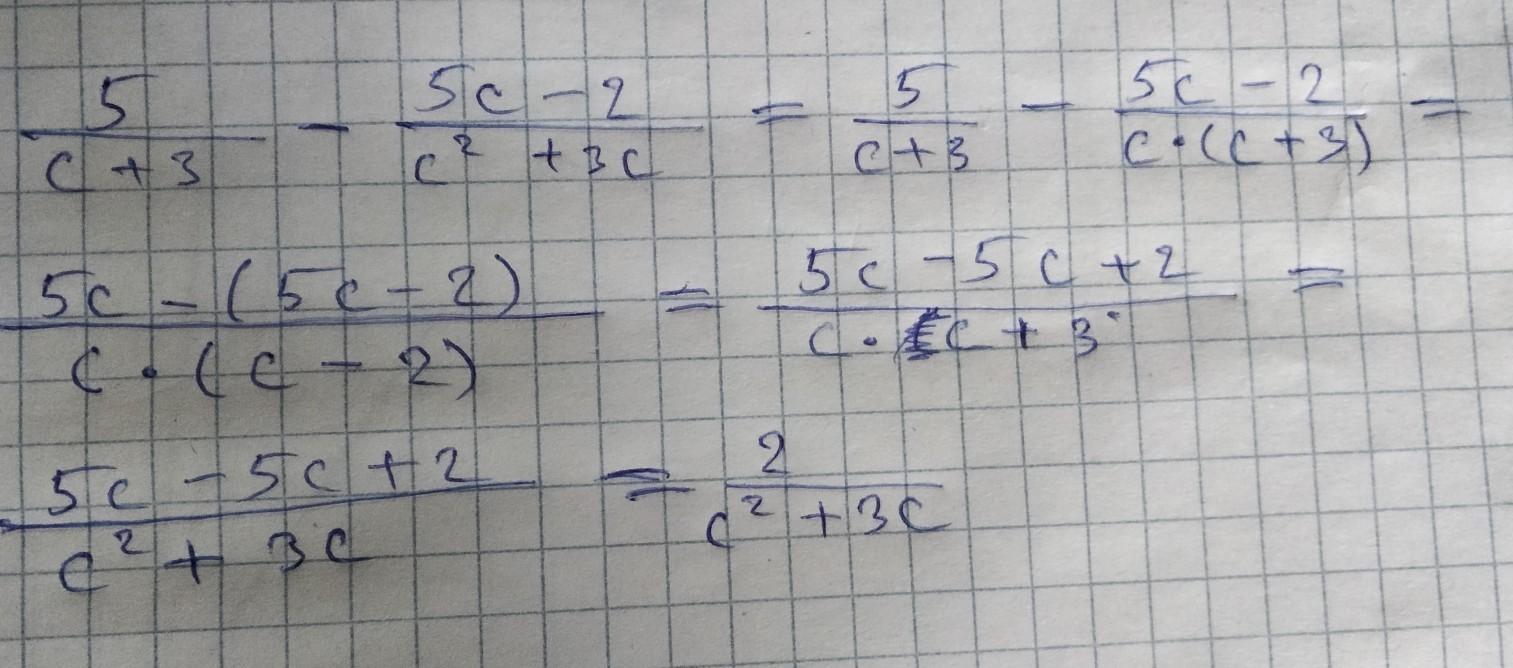 5/(c + 3) - (5c - 2)/(c² + 3c) = 5/(c + 3) - (5c - 2)/(c · (c + 3)) =
(5c - (5c - 2))/(c · (c - 2)) = (5c - 5c + 2)/(c · c + 3) =
(5c - 5c + 2)/(c² + 3c) = 2/(c² + 3c)